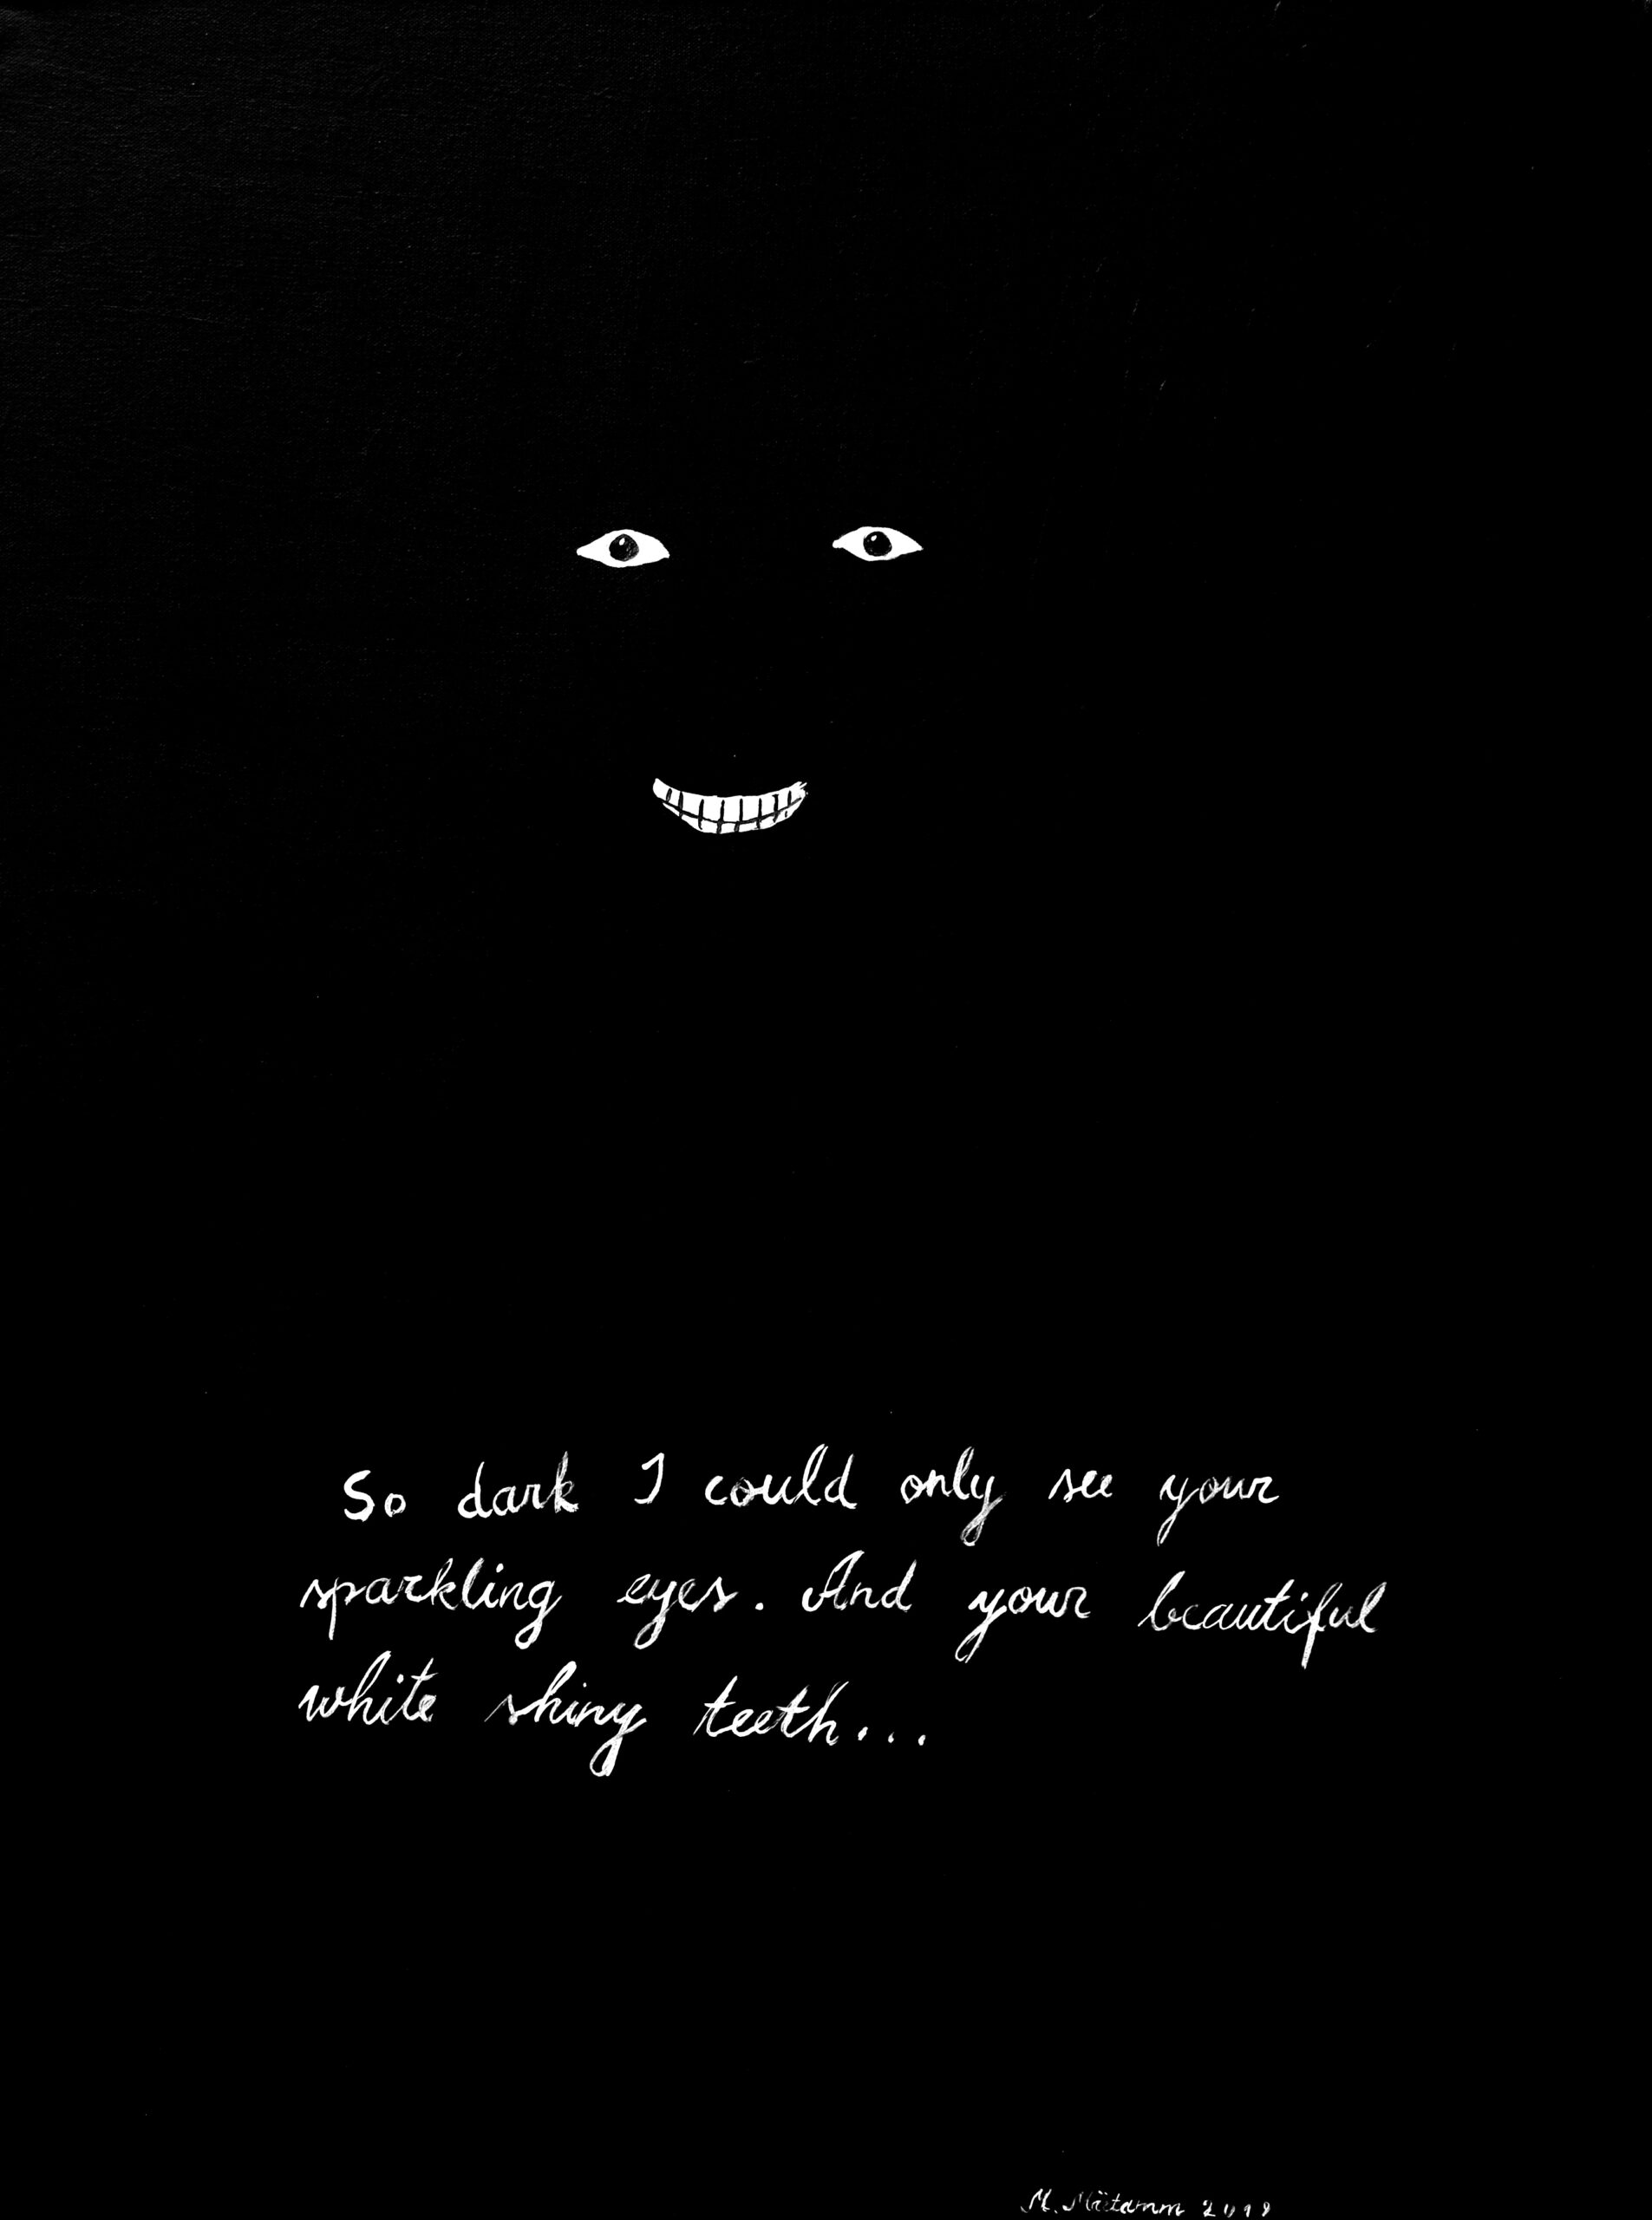 So dark I could only see your
sparkling eyes. And your beautiful
white shiny teeth...
M. Mätamm 2019